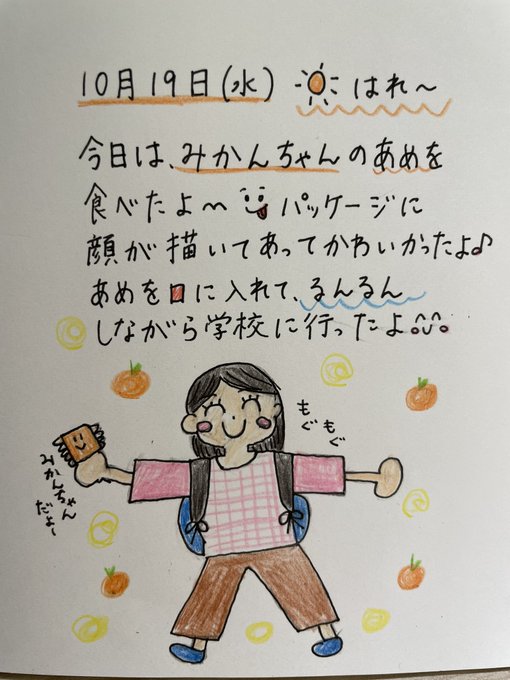 10月19日(水) はれ〜
今日は、みかんちゃんのあめを
食べたよ〜 パッケージに
顔が描いてあってかわいかったよ♪
あめを口に入れて、るんるん
しながら学校に行ったよ。
もぐもぐ
みかんちゃん
だよー